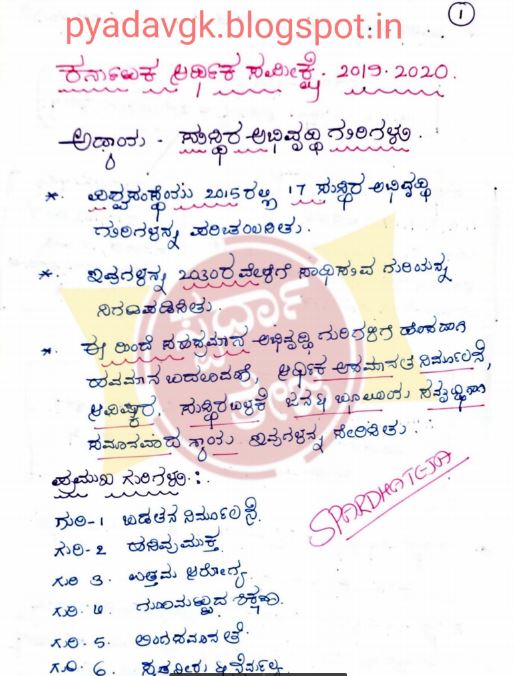 pyadavgk.blogspot.in
1
ಕರ್ನಾಟಕ ಆರ್ಥಿಕ ಸಮೀಕ್ಷೆ. 2019-2020.
ಅಧ್ಯಾಯ - ಸುಸ್ಥಿರ ಅಭಿವೃದ್ಧಿ ಗುರಿಗಳು.
* ವಿಶ್ವಸಂಸ್ಥೆಯು 2015 ರಲ್ಲಿ 17 ಸುಸ್ಥಿರ ಅಭಿವೃದ್ಧಿ
ಗುರಿಗಳನ್ನು ಪರಿಚಯಿಸಿತು.
* ಇವುಗಳನ್ನು 2030ರ ವೇಳೆಗೆ ಸಾಧಿಸುವ ಗುರಿಯನ್ನು
ನಿಗದಿಪಡಿಸಿತು.
* ಈ ಹಿಂದೆ ಸಹಸ್ರಮಾನ ಅಭಿವೃದ್ಧಿ ಗುರಿಗಳಿಗೆ ಹೊಸದಾಗಿ
ಹವಮಾನ ಬದಲಾವಣೆ, ಆರ್ಥಿಕ ಅಸಮಾನತೆ ನಿರ್ಮೂಲನೆ,
ಆವಿಷ್ಕಾರ, ಸುಸ್ಥಿರ ಬಳಕೆ
ಸಮಾನವಾದ ನ್ಯಾಯ ಇವುಗಳನ್ನು ಸೇರಿಸಿತು.
ಸ್ಪರ್ಧಾ
ತೇಜ
ಪ್ರಮುಖ ಗುರಿಗಳು:
SPARDHATEJA
ಗುರಿ-1 ಬಡತನ ನಿರ್ಮೂಲನೆ.
ಗುರಿ-2 ಹಸಿವು ಮುಕ್ತ.
ಗುರಿ 3. ಉತ್ತಮ ಆರೋಗ್ಯ.
ಗುರಿ. 4 ಗುಣಮಟ್ಟದ ಶಿಕ್ಷಣ.
ಗುರಿ. 5. ಲಿಂಗ ಸಮಾನತೆ
ಗುರಿ. 6.